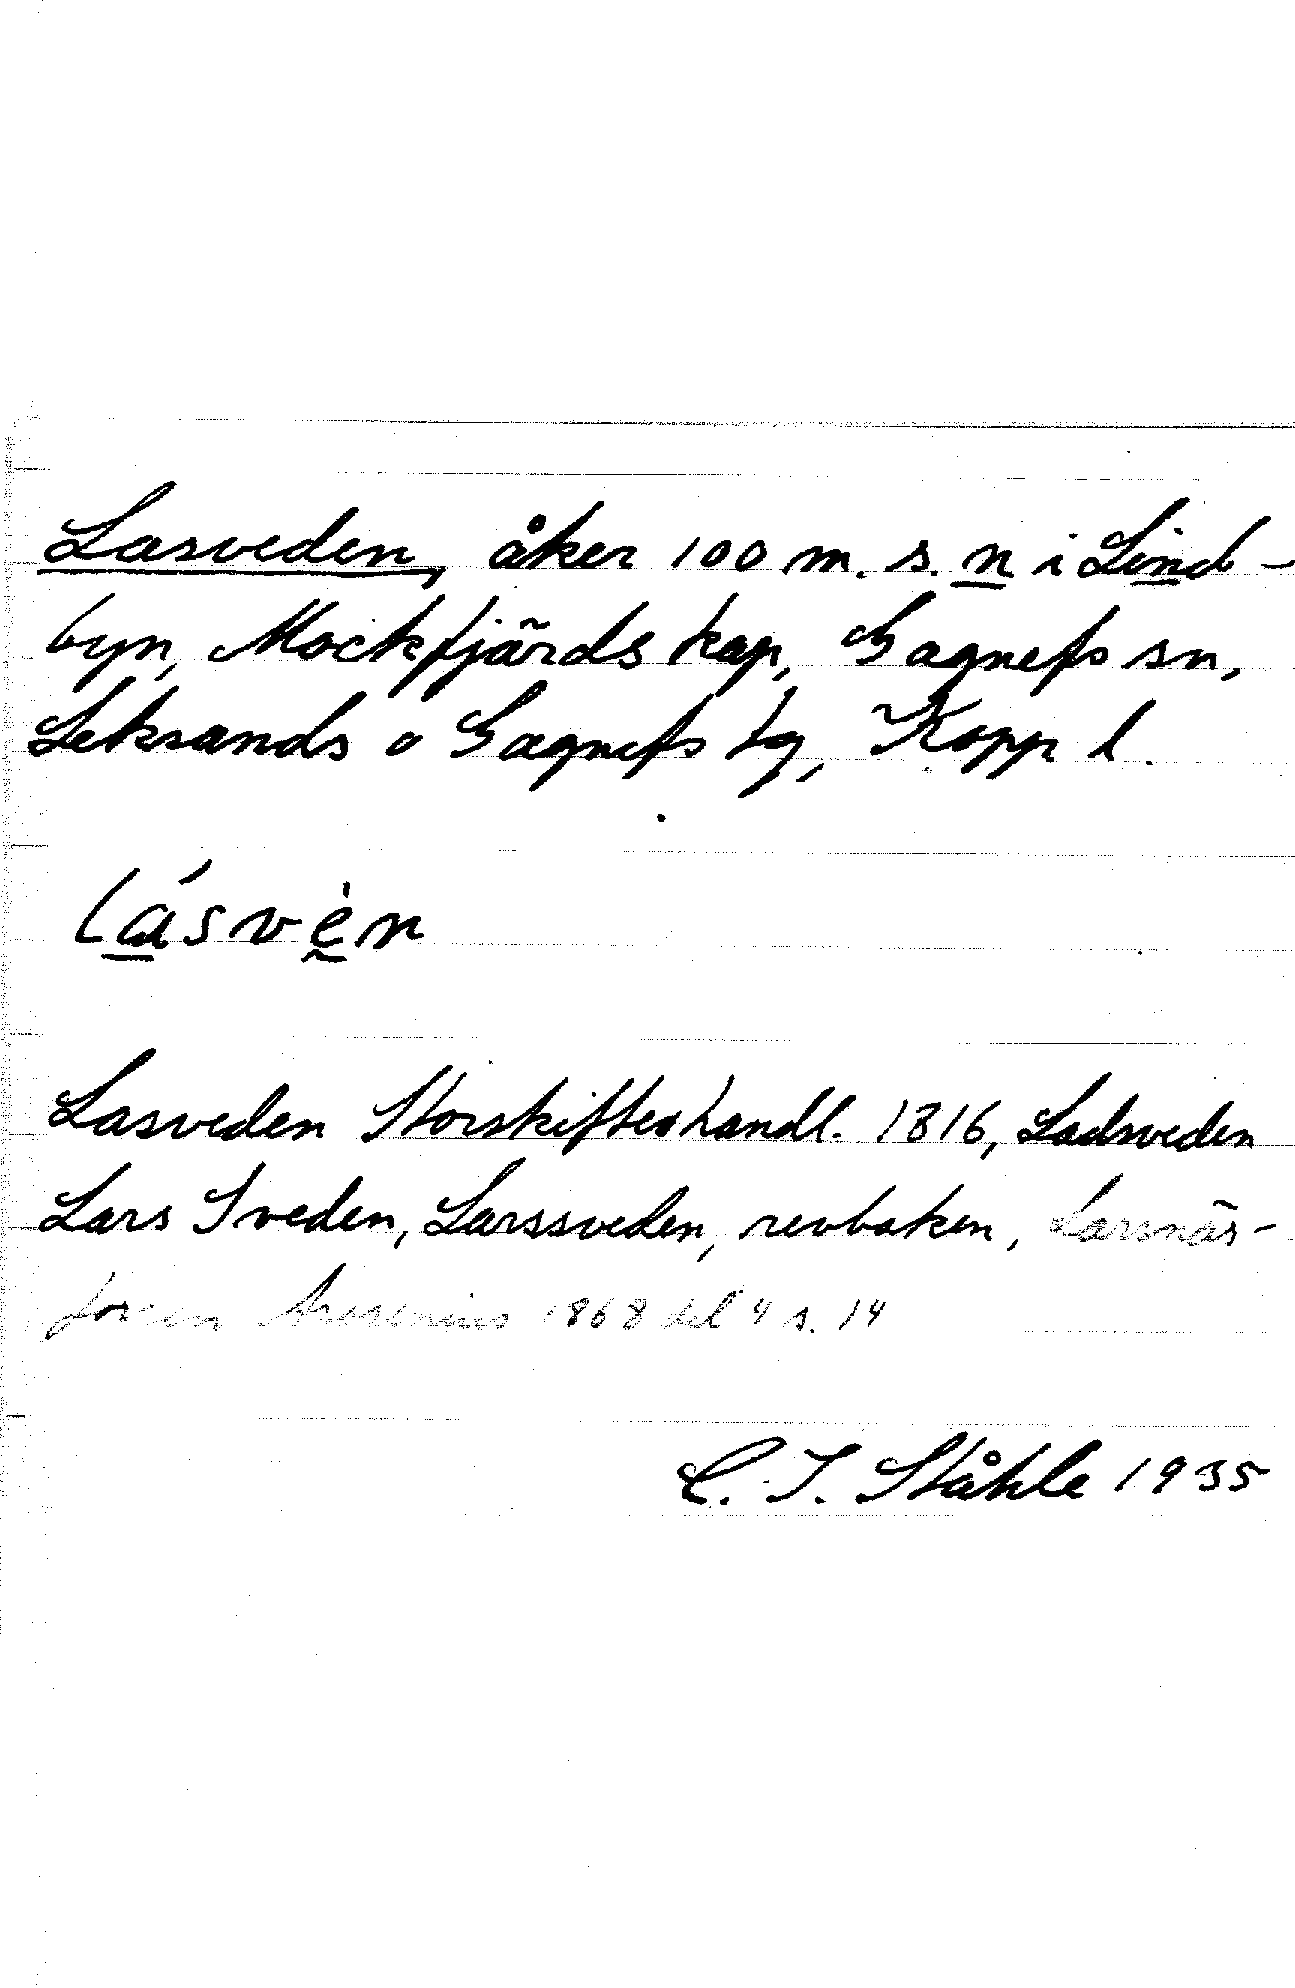 Lasveden, åker 100 m. s. n i Lind-
byn, Mockfjärds kap, Gagnefs sn,
Leksands o Gagnefs tg, Kopp l.
lásvèn
Lasveden Storskifteshandl. 1816, Ladsveden
Lars Sveden, Larssveden, revboken, Larsnäs-
Arosenius 1868 del 4 s. 14
C. I. Ståhle 1935